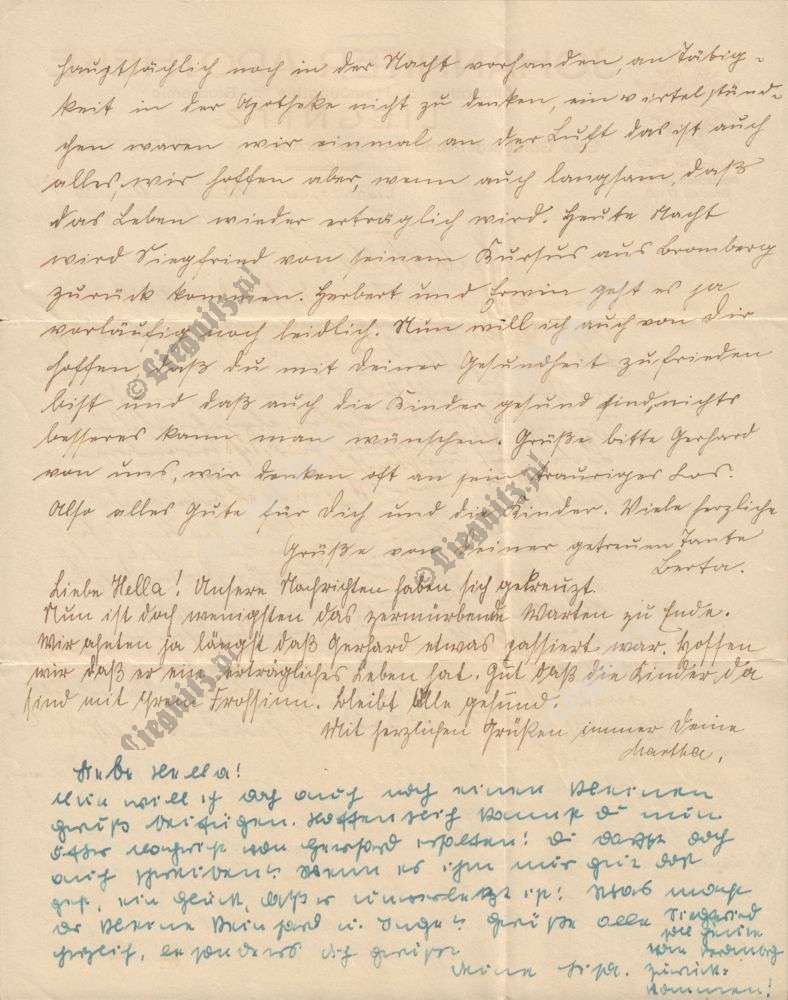 hauptsächlich noch in der Nacht vorhanden, an Tätig-
keit in der Apotheke nicht zu denken, ein viertelstünd-
chen waren wir einmal an der Luft das ist auch
alles, wir hoffen aber, wenn auch langsam, daß
das Leben wieder erträglich wird. Heute Nacht
wird Siegfried von seinem Kursus aus Bromberg
zurück kommen. Herbert und Erwin geht es ja
vorläufig noch leidlich. Nun will ich auch von Dir
hoffen daß du mit deiner Gesundheit zufrieden
bist und daß auch die Kinder gesund sind, nichts
besseres kann man wünschen. Grüße bitte Gerhard
von uns, wir denken oft an sein trauriges Los.
Also alles Gute für Dich und die Kinder. Viele herzliche
Grüße von deiner getreuen Tante
Berta.
Liebe Hella! Unsere Nachrichten haben sich gekreuzt.
Nun ist doch wenigsten das zermürbende Warten zu Ende.
Wir ahnten ja längst daß Gerhard etwas passiert war. Hoffen
wir daß er ein erträgliches Leben hat. Gut daß die Kinder da
sind mit ihrem Frohsinn. Bleibt alle gesund.
Mit herzlichen Grüßen immer Deine
Martha.
Liebe Hella!
Nun will ich doch auch noch einen kleinen
Gruß beifügen. Hoffentlich kannst du nun
öfter Nachricht von Gerhard erhalten! du darfst doch
auch schreiben? Wenn es ihm nur gut
geht, ein Glück, daß er unverletzt ist! Was macht
der kleine Reinhard u. Inge? Grüße alle
herzlich, besonders dich grüßt
deine
Siegfried
soll heute
von Bromberg
zurück-
kommen!
© Liegnitz.pl
© Liegnitz.pl
Liegnitz.pl